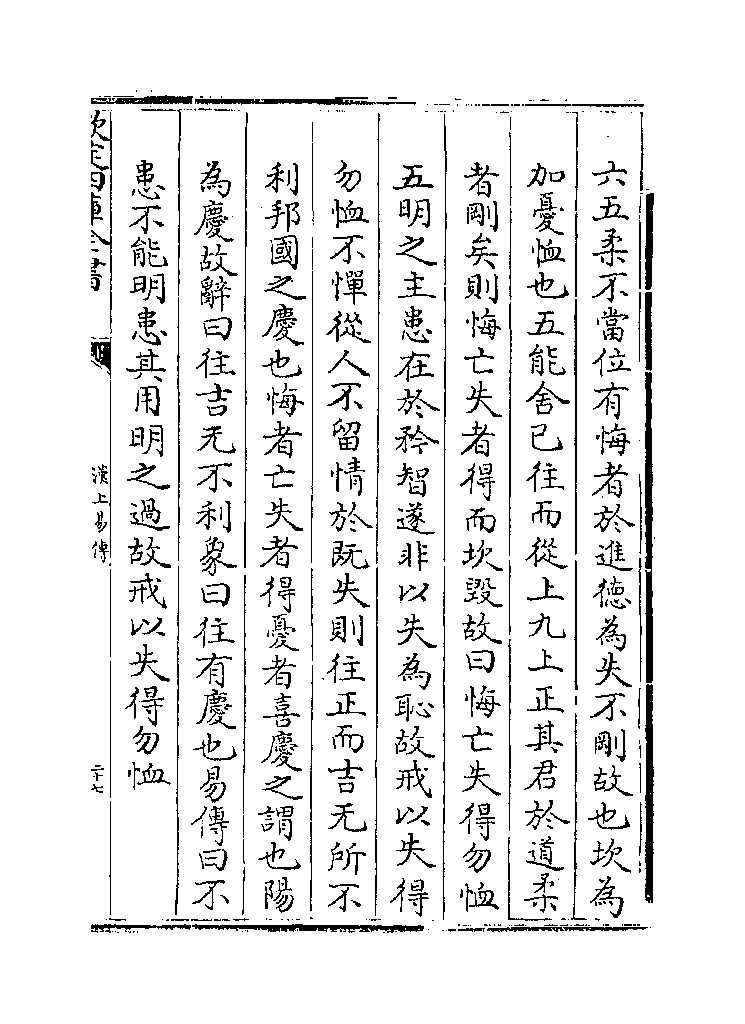 六五柔不當位有悔者於進德為失不剛故也坎為
加憂恤也五能舍已往而從上九上正其君於道柔
者剛矣則悔亡失者得而坎毀故曰悔亡失得勿恤
五明之主患在於矜智遂非以失為恥故戒以失得
勿恤不憚從人不留情於既失則往正而吉无所不
利邦國之慶也悔者亡失者得憂者喜慶之謂也陽
為慶故辭曰往吉无不利象曰往有慶也易傳曰不
患不能明患其用明之過故戒以失得勿恤
欽定四庫全書
漢上易傳
二十七